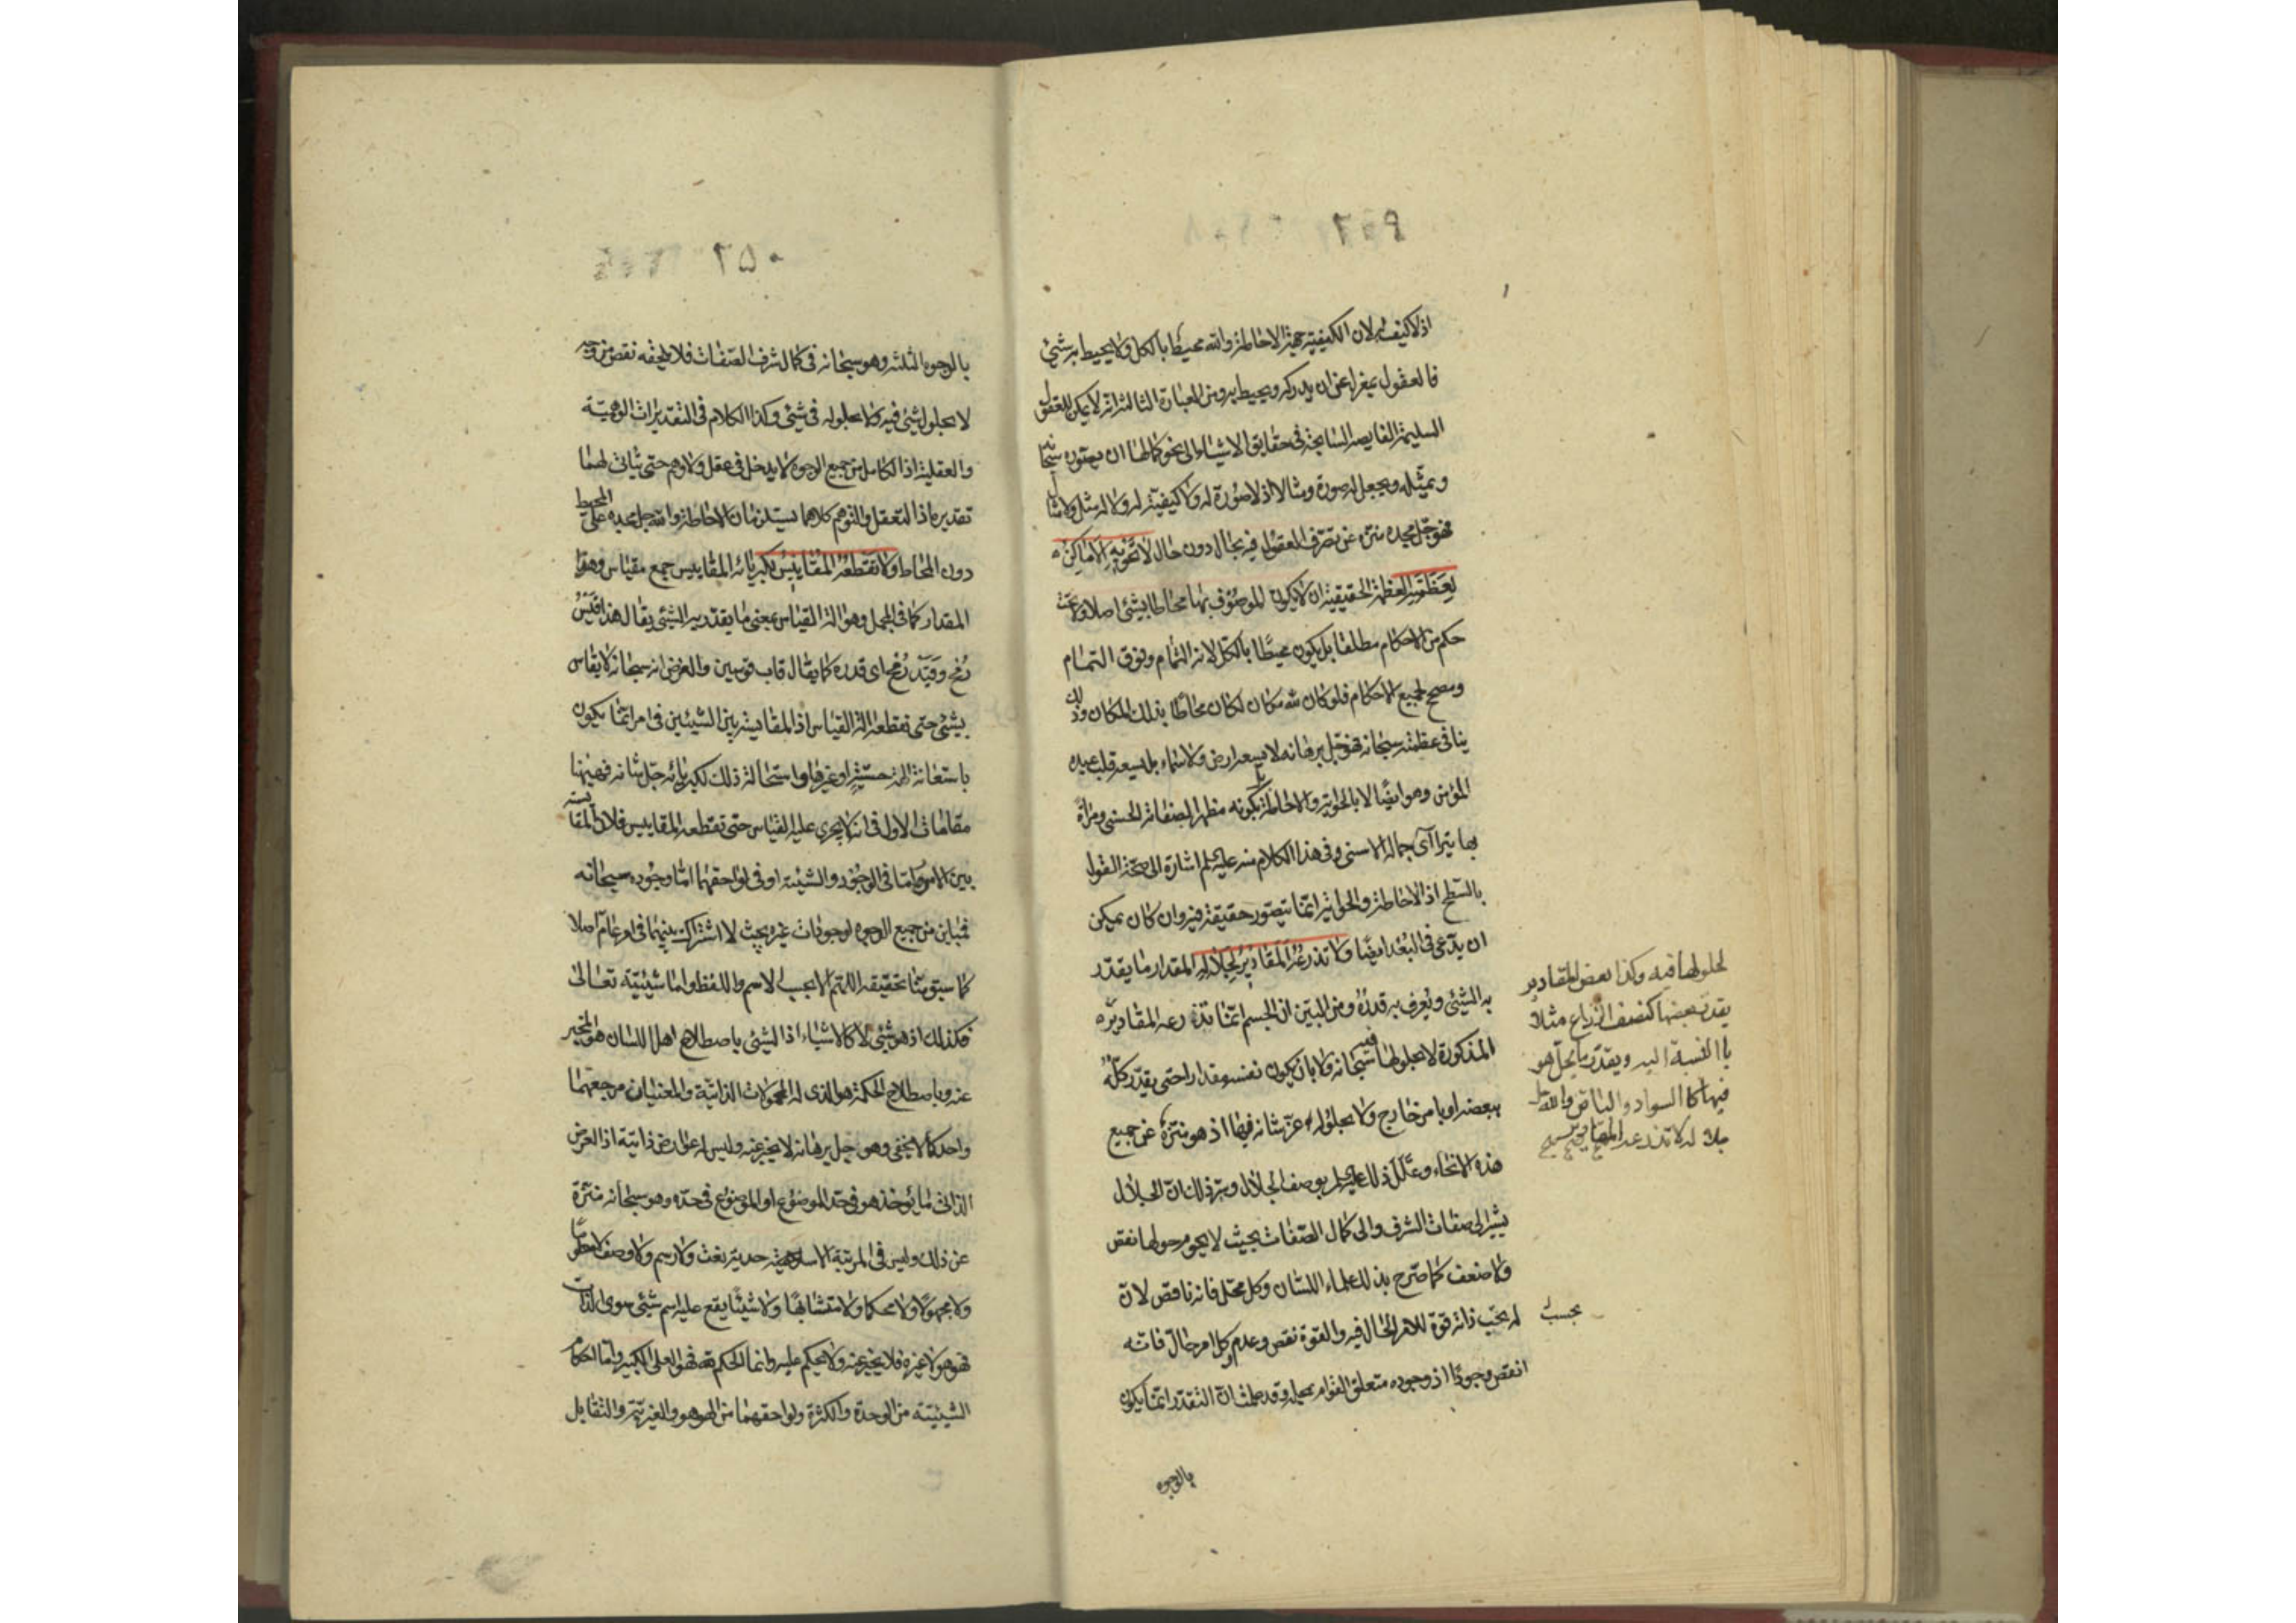 اذ لا كيف له لان الكيفية جهة الاحاطة والله محيط بالكل ولا يحيط به شيئ
فالعقول بمعزل عن ان يدركه ويحيط به ومن العبارة الثالثة انه لا يمكن للعقول
السليمة الغايصة السايحة في حقايق الاشياء الى نحو كمالها ان يصوره سبحانه
ويمثله ويجعل له صورة ومثالا اذ لا صورة له ولا كيفية له ولا له مثل ولا مثال
فهو جل مجده منزه عن تصرف العقول فيه بحال دون حال لا تحويه الاماكن
لعظمته العظمة الحقيقية ان لا يكون الموصوف بها محاطا بشيئ اصلا ولا تحت
حكم من الاحكام مطلقا بل يكون محيطا بالكل لانه التمام وفوق التمام
ومصحح لجميع الاحكام فلو كان لله مكان لكان محاطا بذلك المكان وذلك
ينافي عظمته سبحانه فهو جل برهانه لا يسعه ارض ولا سماء بل يسعه قلب عبده
المؤمن وهو ايضا لا بالحواية والاحاطة بل بكونه مظهرا لصفاته الحسنى ومرآة
بها يتراآى جماله الاسنى وفي هذا الكلام منه عليه السلم اشارة الى صحة القول
بالسطح اذ الاحاطة والحواية انما يتصور حقيقة فيه وان كان يمكن
ان يدعى في البعد ايضا ولا تذرعه المقادير لجلاله المقدار ما يقدر
به الشيئ ويعرف به قدره ومن البين ان الجسم انما تذرعه المقادير
المذكورة لا بحلولها فيه سبحانه ولا بان يكون نفسه مقدارا حتى يقدر كله
ببعضه او بامر خارج ولا بحلوله عز شانه فيها اذ هو منزه عن جميع
هذه الانحاء وعلل ذلك عليه السلم بوصف الجلال وسر ذلك ان الجلال
يشير الى صفات الشرف والى كمال الصفات بحيث لا يحوم حولها نقص
ولا ضعف كما صرح بذلك علماء اللسان وكل محل فانه ناقص لان
له بحسب ذاته قوة للامر الحال فيه والقوة نقص وعدم وكل امر حال فانه
انقص وجودا اذ وجوده متعلق القوام بمحله وقد علمت ان التقدر انما يكون
بالوجوه
لحلولها فيه وكذا بعض المقادير
يقدر بعضها كنصف الذراع مثلا
بالنسبة اليه ويقدر ما يحل هو
فيها كالسواد والبياض والله
بحسب
٢٥٠
بالوجوه الثلثه وهو سبحانه في كمال شرف الصفات فلا يلحقه نقص من وجه
لا بحلول شيئ فيه ولا بحلوله في شيئ وكذا الكلام في التقديرات الوهمية
والعقلية اذ الكامل من جميع الوجوه لا يدخل في عقل ولا وهم حتى يتأتى لهما
تقديره اذ التعقل والتوهم كلاهما يستلزمان الاحاطة والله جل مجده على المحيط
دون المحاط ولا تقطعه المقاييس لكبريائه المقاييس جمع مقياس وهو
المقدار كما في المجمل وهو آلة القياس بمعنى ما يقدر به الشيئ يقال هذا قيس
رمح وقيد رمح اى قدره كما يقال قاب قوسين والغرض انه سبحانه لا يقاس
بشيئ حتى تقطعه آلة القياس اذ المقايسة بين الشيئين في امر انما يكون
باستعانة آلة حسية او غيرها واستحالة ذلك لكبريائه جل شانه فههنا
مقامات الاول في انه لا يجرى عليه القياس حتى تقطعه المقاييس فلان المقايسة
بين الامور اما في الوجود والشيئية او في لواحقهما اما وجوده سبحانه
فمباين من جميع الوجوه لوجودات غيره بحيث لا اشتراك بينهما في امر عام اصلا
كما سبق منا تحقيقه اللهم الا بحسب الاسم واللفظ واما شيئيته تعالى
فكذلك اذ هو شيئ لا كالاشياء اذ الشيئ باصطلاح اهل اللسان هو المخبر
عنه وباصطلاح الحكمة هو الذى له المحمولات الذاتية والمعنيان مرجعهما
واحد كما لا يخفى وهو جل برهانه لا يخبر عنه وليس له عوارض ذاتية اذ العرض
الذاتى ما يؤخذ هو في حد الموضوع او الموضوع في حده وهو سبحانه منزه
عن ذلك وليس في المرتبة الاحدية نعت ولا رسم ولا وصف
ولا مجهولا ولا محكما ولا متشابها ولا شيئا يقع عليه اسم شيئ سوى الذات
فهو هو لا غيره فلا يخبر عنه ولا يحكم عليه وانما الحكم لله فهو العلى الكبير واما احكام
الشيئية من الوحدة والكثرة ولواحقهما من الهوهو والغيرية والتقابل